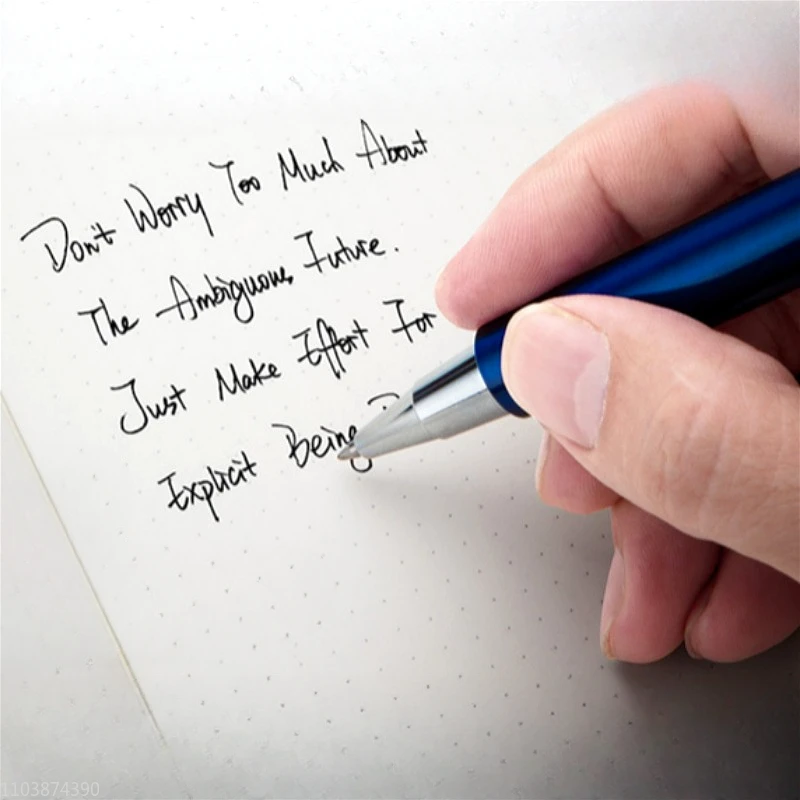 Don't Worry Too Much About
The Ambiguous Future.
Just Make Effort For
Explicit Being
1103874390